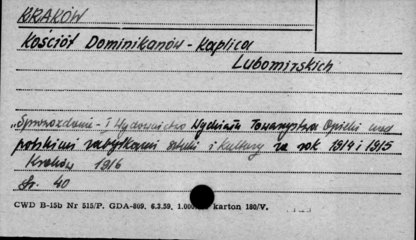 KRAKÓW
Kościół Dominikanów - Kaplica
Lubomirskich
"Sprawozdanie - i Wydawnictwo Wydziału Towarzystwa Opieki nad
polskimi zabytkami sztuki i kultury za rok 1914 i 1915
Kraków 1916
str. 40
CWD B-15b Nr 515/P. GDA-809. 6.3.59. 1.000 karton 180/V.